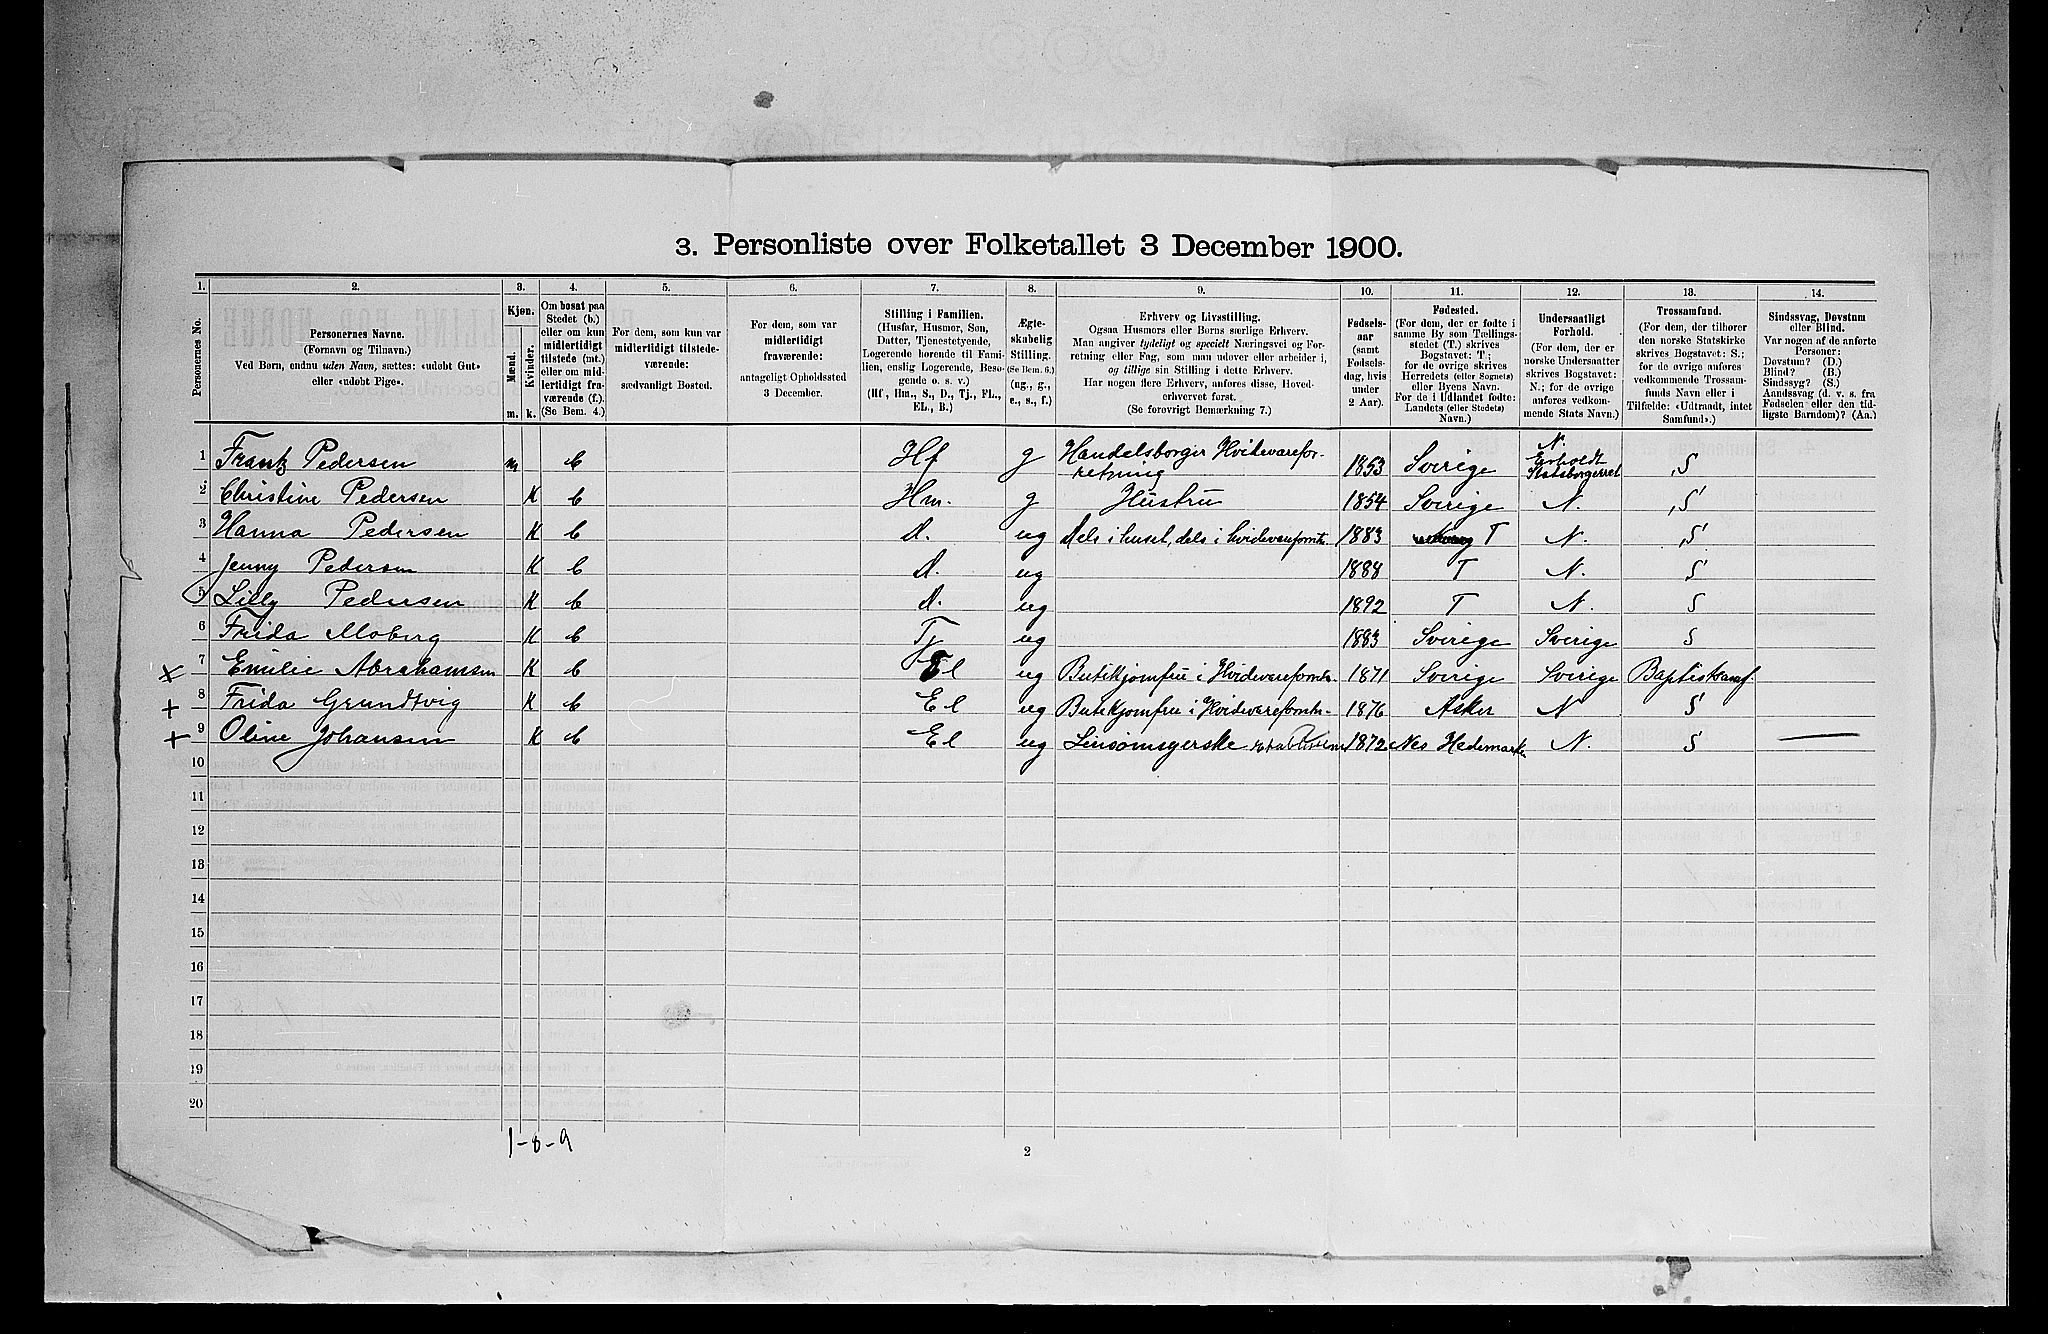 3. Personliste over Folketallet 3 December 1900.
1. 2. 3. 4. 5. 6. 7. 8. 9. 10. 11. 12. 13. 14.
Personernes No.
Personernes Navne.
(Fornavn og Tilnavn.)
Ved Børn, endnu uden Navn, sættes: «udøbt Gut»
eller «udøbt Pige».
Kjøn.
Mænd.
Kvinder.
m. k.
Om bosat paa
Stedet (b.)
eller om kun
midlertidigt
tilstede (mt.)
eller om mid-
lertidigt fra-
værende (f.).
(Se Bem. 4.)
For dem, som kun var
midlertidigt tilstede-
værende:
sædvanligt Bosted.
For dem, som var
midlertidigt
fraværende:
antageligt Opholdssted
3 December.
Stilling i Familien.
(Husfar, Husmor, Søn,
Datter, Tjenestetyende,
Logerende hørende til Fami-
lien, enslig Logerende, Besø-
gende o. s. v.)
(Hf., Hm., S., D., Tj., FL.,
EL., B.)
Ægte-
skabelig
Stilling.
(Se Bem. 6.)
(ug., g.,
e., s., f.)
Erhverv og Livsstilling.
Ogsaa Husmors eller Børns særlige Erhverv.
Man angiver tydeligt og specielt Næringsvei og For-
retning eller Fag, som man udøver eller arbeider i,
og tillige sin Stilling i dette Erhverv.
Har nogen flere Erhverv, anføres disse, Hoved-
erhvervet først.
(Se forøvrigt Bemærkning 7.)
Fødsels-
aar
(samt
Fødsels-
dag, hvis
under
2 Aar).
Fødested.
(For dem, der er fødte i
samme By som Tællings-
stedet (T.) skrives
Bogstavet: T;
for de øvrige skrives
Herredets (eller Sognets)
eller Byens Navn.
For de i Udlandet fødte:
Landets (eller Stedets)
Navn.)
Undersaatligt
Forhold.
(For dem, der er
norske Undersaatter
skrives Bogstavet:
N.; for de øvrige
anføres vedkom-
mende Stats Navn.)
Trossamfund.
(For dem, der tilhører
den norske Statskirke
skrives Bogstavet: S.;
for de øvrige anføres
vedkommende Trossam-
funds Navn eller i
Tilfælde: «Udtraadt, intet
Samfund».)
Sindssvag, Døvstum
eller Blind.
Var nogen af de anførte
Personer:
Døvstum? (D.)
Blind? (B.)
Sindssyg? (S.)
Aandssvag (d. v. s. fra
Fødselen eller den tid-
ligste Barndom)? (Aa.)
1 Frantz Pedersen m b Hf g Handelsborger Hvidevarefor-retning 1853 Sverige N. Erholdt Statsborgerret S
2 Christine Pedersen K b Hm. g Hustru 1854 Sverige N. S
3 Hanna Pedersen K b d. ug dels i huset, dels i hvidevareforretn. 1883 T N. S
4 Jenny Pedersen K b d. ug 1888 T N. S
5 Lilly Pedersen K b d. ug 1892 T N. S
6 Frida Moberg K b Tj ug 1883 Sverige Sverige S
x 7 Emilie Abrahamsen K b El ug Butikjomfru i Hvidevareforretn. 1871 Sverige Sverige Baptistsamf.
+ 8 Frida Grundtvig K b El ug Butikjomfru i Hvidevareforretn. 1876 Asker N S
+ 9 Oline Johansen K b El ug Linsømsyerske 1872 Nes Hedemarken N. S
10
11
12
13
14
15
16
17
18
19
20
1-8-9
2